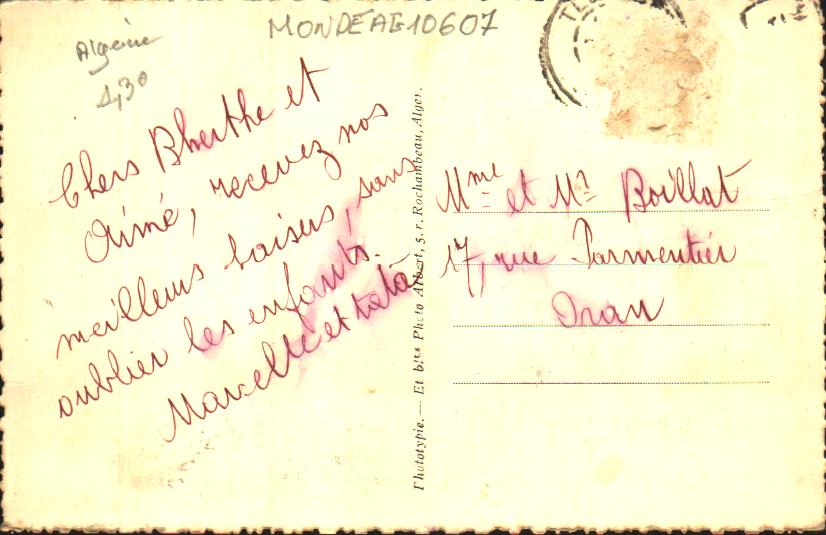 MONDEAG10607
Algérie
1,30
Chers Bherthe et
Aimé, recevez nos
meilleurs baisers, sans
oublier les enfants.
Marcelle et tata
Phototypie. — Et blts Photo Albert, 5, r. Rochambeau, Alger.
Mme et Mr Boillat
17, rue Parmentier
Oran